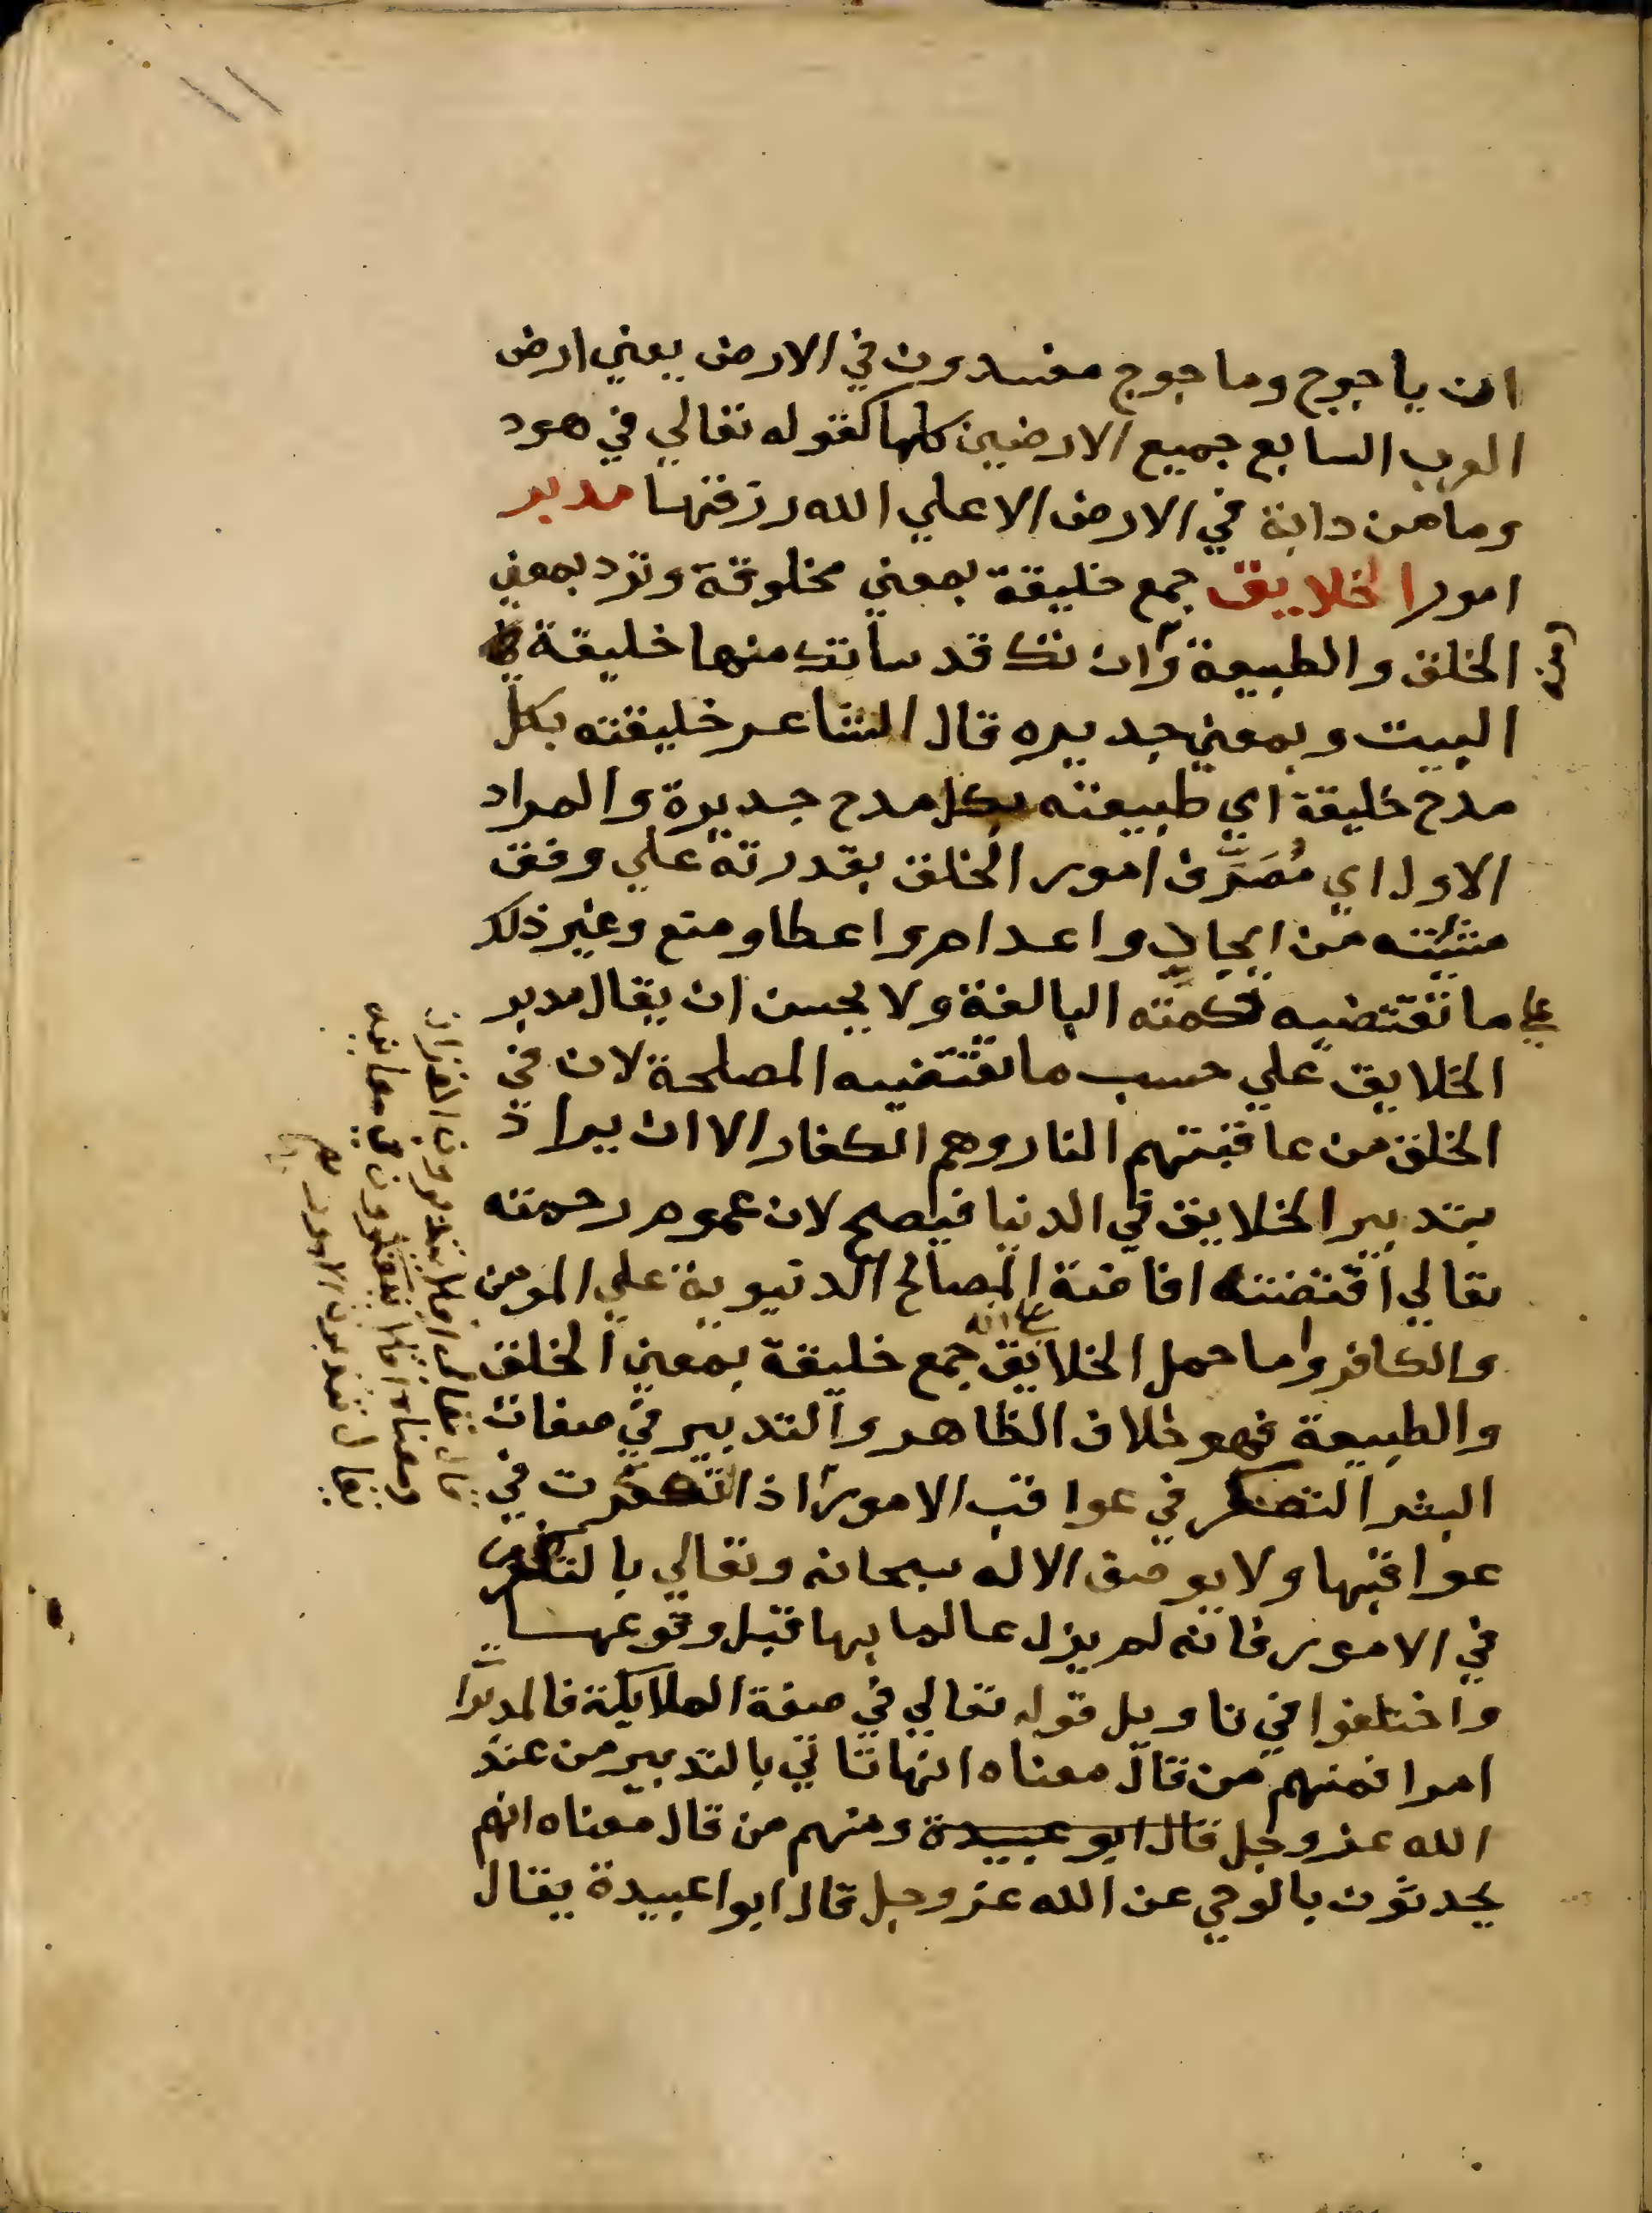 ان ياجوج وماجوج مفسدون في الارض يعني ارض
العرب السابع جميع الارضين كلها كقوله تعالي في هود
وما من دابة في الارض الا علي الله رزقها مدبر
امور الخلايق جمع خليقة بمعني مخلوقة وترد بمعني
الخلق والطبيعة وان تك قد ساتك منها خليقة
البيت وبمعني جديره قال الشاعر خليقته بكل
مدح خليقة اي طبيعته بكل مدح جديرة والمراد
الاول اي مُصَرِّف امور الخلق بقدرته علي وفق
مشيئته من ايجاد واعدام واعطا ومنع وغير ذلك
علي ما تقتضيه حكمته البالغة ولا يحسن ان يقال مدبر
الخلايق علي حسب ما تقتضيه المصلحة لان في
الخلق من عاقبتهم النار وهم الكفار الا ان يراد
بتدبير الخلايق في الدنيا فيصح لان عموم رحمته
تعالي اقتضت افاضة المصالح الدنيوية علي المومن
والكافر واما حمل الخلايق علي انه جمع خليقة بمعني الخلق
والطبيعة فهو خلاف الظاهر والتدبير في صفات
البشر التفكر في عواقب الامور اذا تفكرت في
عواقبها ولا يوصف الاله سبحانه وتعالي بالتفكر
في الامور فانه لم يزل عالما بها قبل وقوعها
واختلفوا في تاويل قوله تعالي في صفة الملايكة فالمدبرات
امرا فمنهم من قال معناه انها تاتي بالتدبير من عند
الله عز وجل قال ابو عبيدة ومنهم من قال معناه انهم
يحدثون بالوحي عن الله عز وجل قال ابوا عبيدة يقال
قال تعالي افلا يتدبرون القران
ومعناه افلا يتفكرون في معانيه
يقال تدبرت الامور